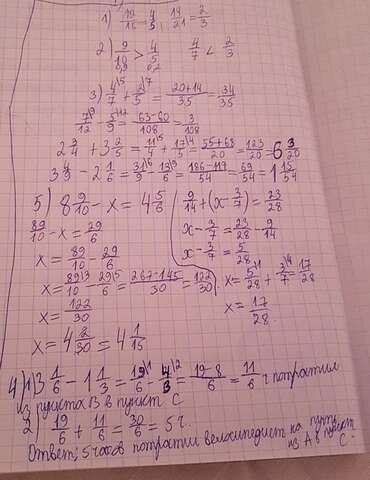 1) 12/15 = 4/5; 14/21 = 2/3
2) 9/10 > 4/5   4/7 < 2/3
0,9   0,2
3) 4/7 \5 + 2/5 \7 = 20+14/35 = 34/35
7/12 \9 - 5/9 \12 = 63-60/108 = 3/108
2 3/4 + 3 2/5 = 11/4 \5 + 17/5 \4 = 55+68/20 = 123/20 = 6 3/20
3 4/9 - 2 1/6 = 31/9 \6 - 13/6 \9 = 186-117/54 = 69/54 = 1 15/54
5) 8 9/10 - x = 4 5/6
89/10 - x = 29/6
x = 89/10 - 29/6
x = 89/10 \3 - 29/6 \5 = 267-145/30 = 122/30
x = 122/30
x = 4 2/30 = 4 1/15
9/14 + (x - 3/7) = 23/28
x - 3/7 = 23/28 - 9/14
x - 3/7 = 5/28
x = 5/28 \1 + 3/7 \4 = 17/28
x = 17/28.
4) 1) 3 1/6 - 1 1/3 = 19/6 \1 - 4/3 \2 = 19-8/6 = 11/6 ч потратил
из пункта В в пункт С
2) 19/6 + 11/6 = 30/6 = 5 ч.
Ответ; 5 часов потратил велосипедист на путь
из А в пункт
С.